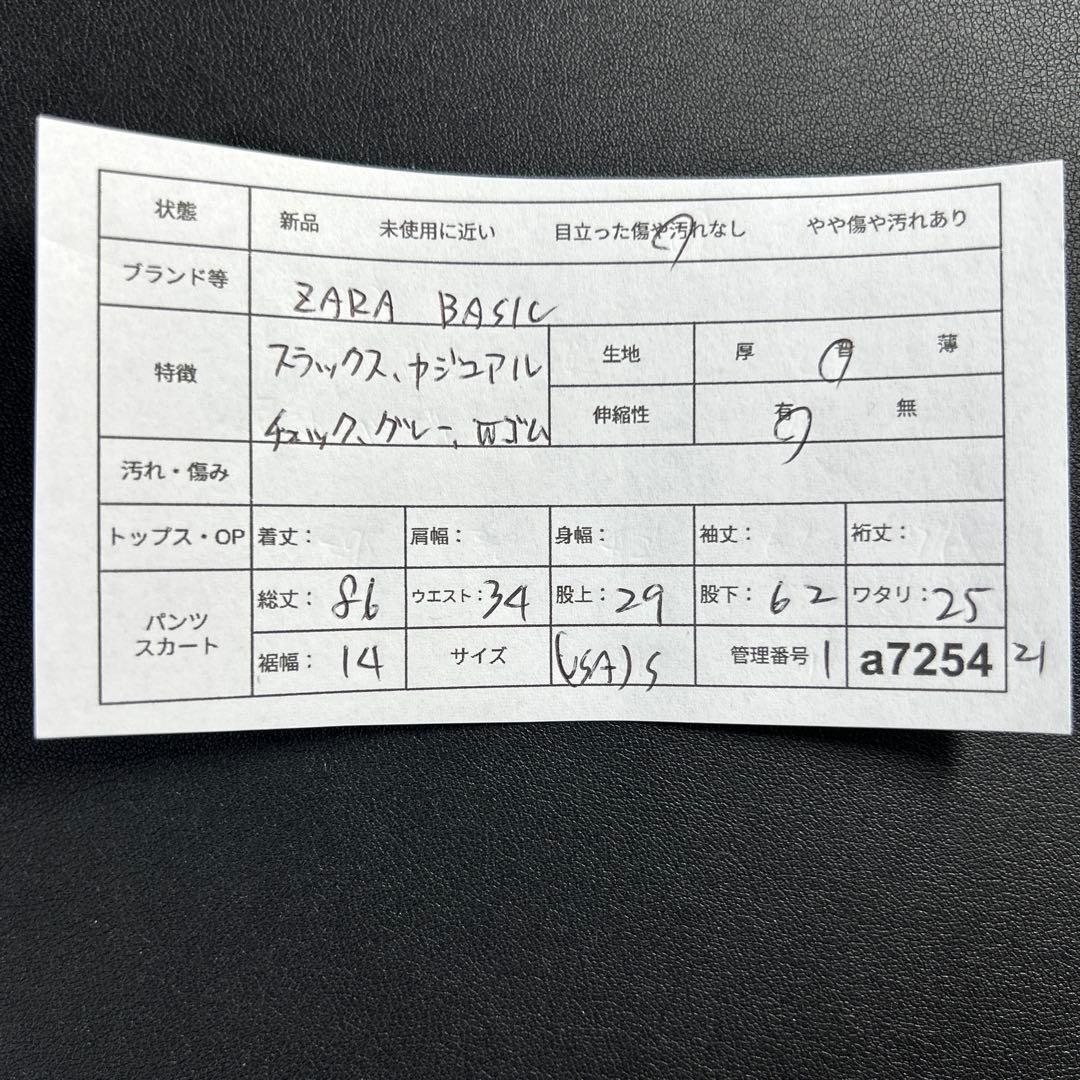 状態 新品 未使用に近い 目立った傷や汚れなし やや傷や汚れあり
ブランド等 ZARA BASIC
特徴 スラックス、カジュアル
チェック、グレー、Wゴム
生地 厚 普 薄
伸縮性 有 無
汚れ・傷み
トップス・OP 着丈: 肩幅: 身幅: 袖丈: 裄丈:
パンツ スカート
総丈: 86 ウエスト: 34 股上: 29 股下: 62 ワタリ: 25
裾幅: 14 サイズ (USA) S 管理番号 1 a7254 21